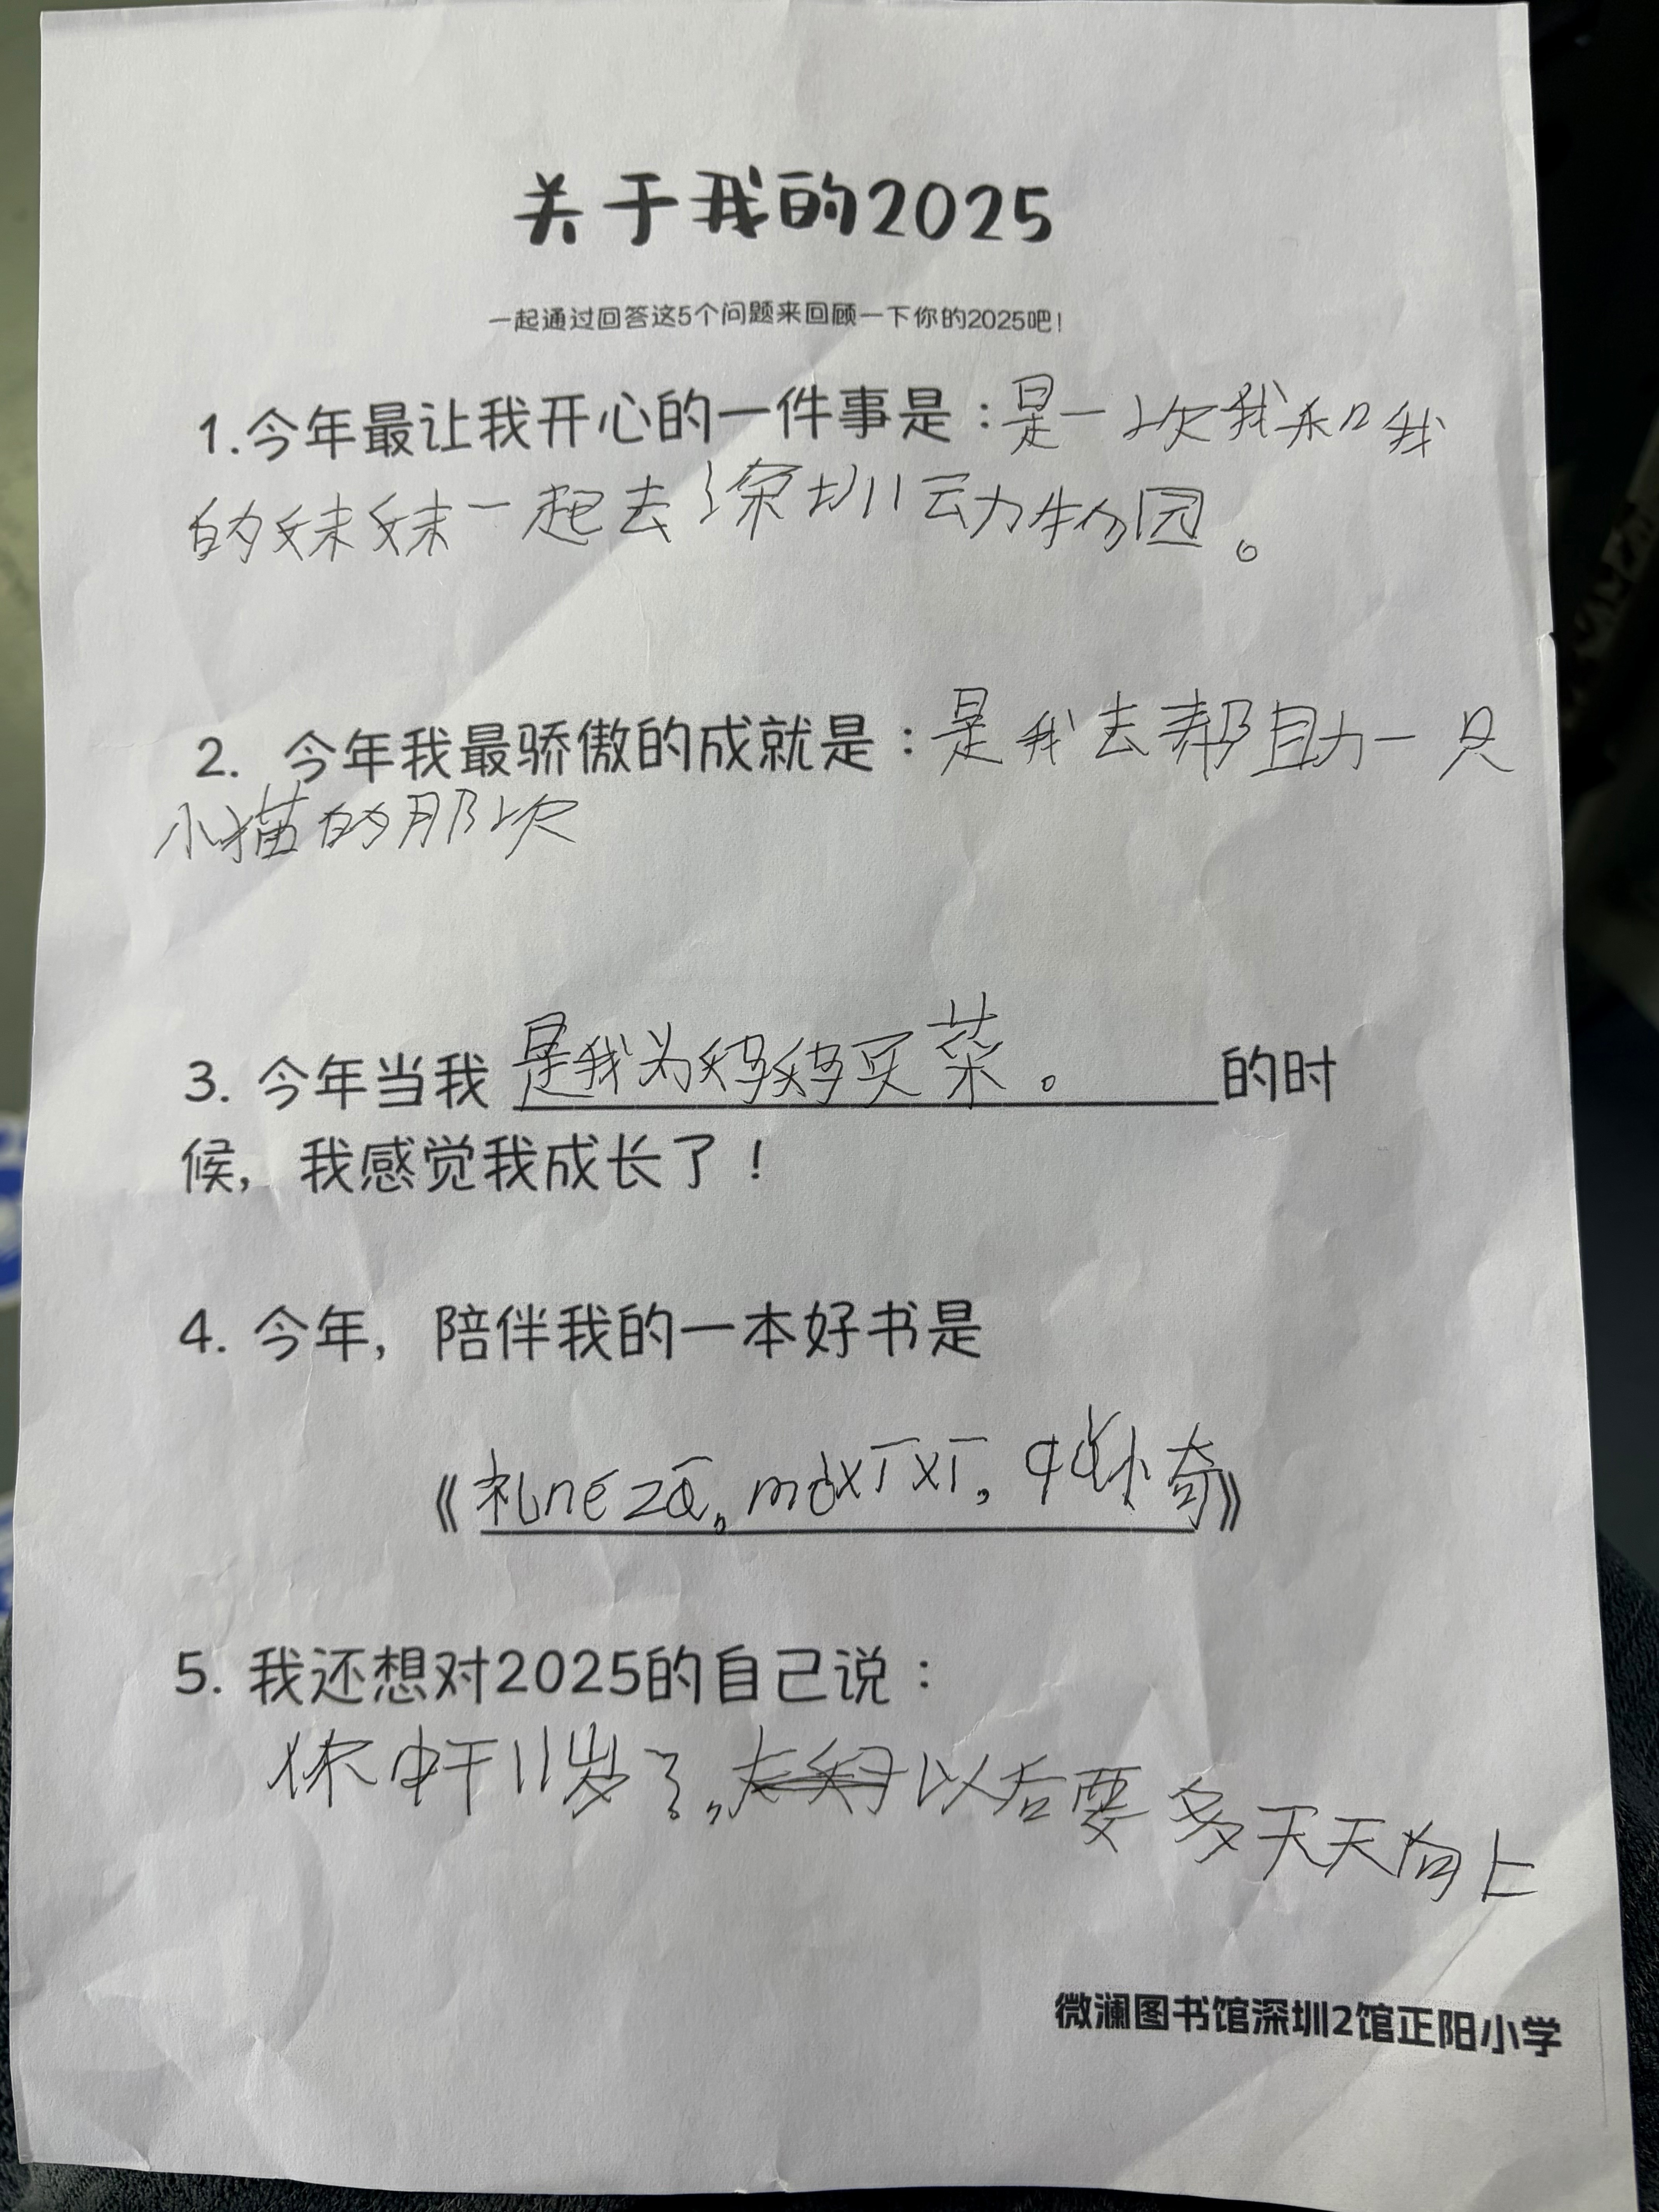 关于我的2025
一起通过回答这5个问题来回顾一下你的2025吧！
1.今年最让我开心的一件事是：是一次我和我
的妹妹一起去深圳动物园。
2. 今年我最骄傲的成就是：是我去帮助一只
小猫的那次
3. 今年当我是我为妈妈买菜。的时
候，我感觉我成长了！
4. 今年，陪伴我的一本好书是
《 nezā, xīxī, 小奇》
5. 我还想对2025的自己说：
11岁了,以后要多天天向上
微澜图书馆深圳2馆正阳小学